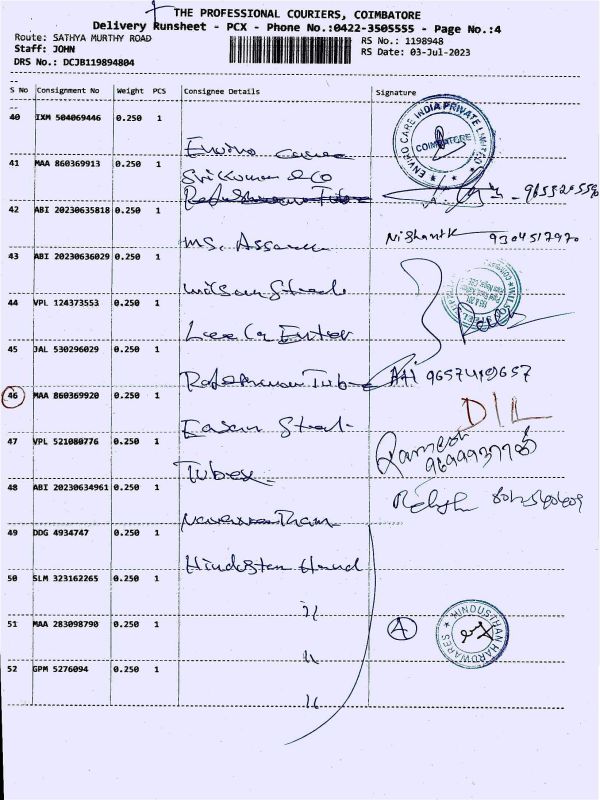 THE PROFESSIONAL COURIERS, COIMBATORE
Delivery Runsheet - PCX - Phone No.:0422-3505555 - Page No.:4
Route: SATHYA MURTHY ROAD
RS No.: 1198948
Staff: JOHN
RS Date: 03-Jul-2023
DRS No.: DCJB119894804
S No Consignment No Weight PCS Consignee Details Signature
40 IXM 504069446 0.250 1
ENVIRO CARE INDIA PRIVATE LIMITED
COIMBATORE
Enviro
41 MAA 860369913 0.250 1
Sri Kumar & Co
42 ABI 20230635818 0.250 1
Ms.
Nishanth 9304517970
43 ABI 20230636029 0.250 1
Wilson Steel
44 VPL 124373553 0.250 1
45 JAL 530296029 0.250 1
Tube
9657419657
46 MAA 860369920 0.250 1
Easan Steel
D/L
47 VPL 521080776 0.250 1
Ramesh
Tubex
48 ABI 20230634961 0.250 1
49 DDG 4934747 0.250 1
Hindustan Hand
50 SLM 323162265 0.250 1
51 MAA 283098790 0.250 1
A
HINDUSTHAN HARDWARES
52 GPM 5276094 0.250 1